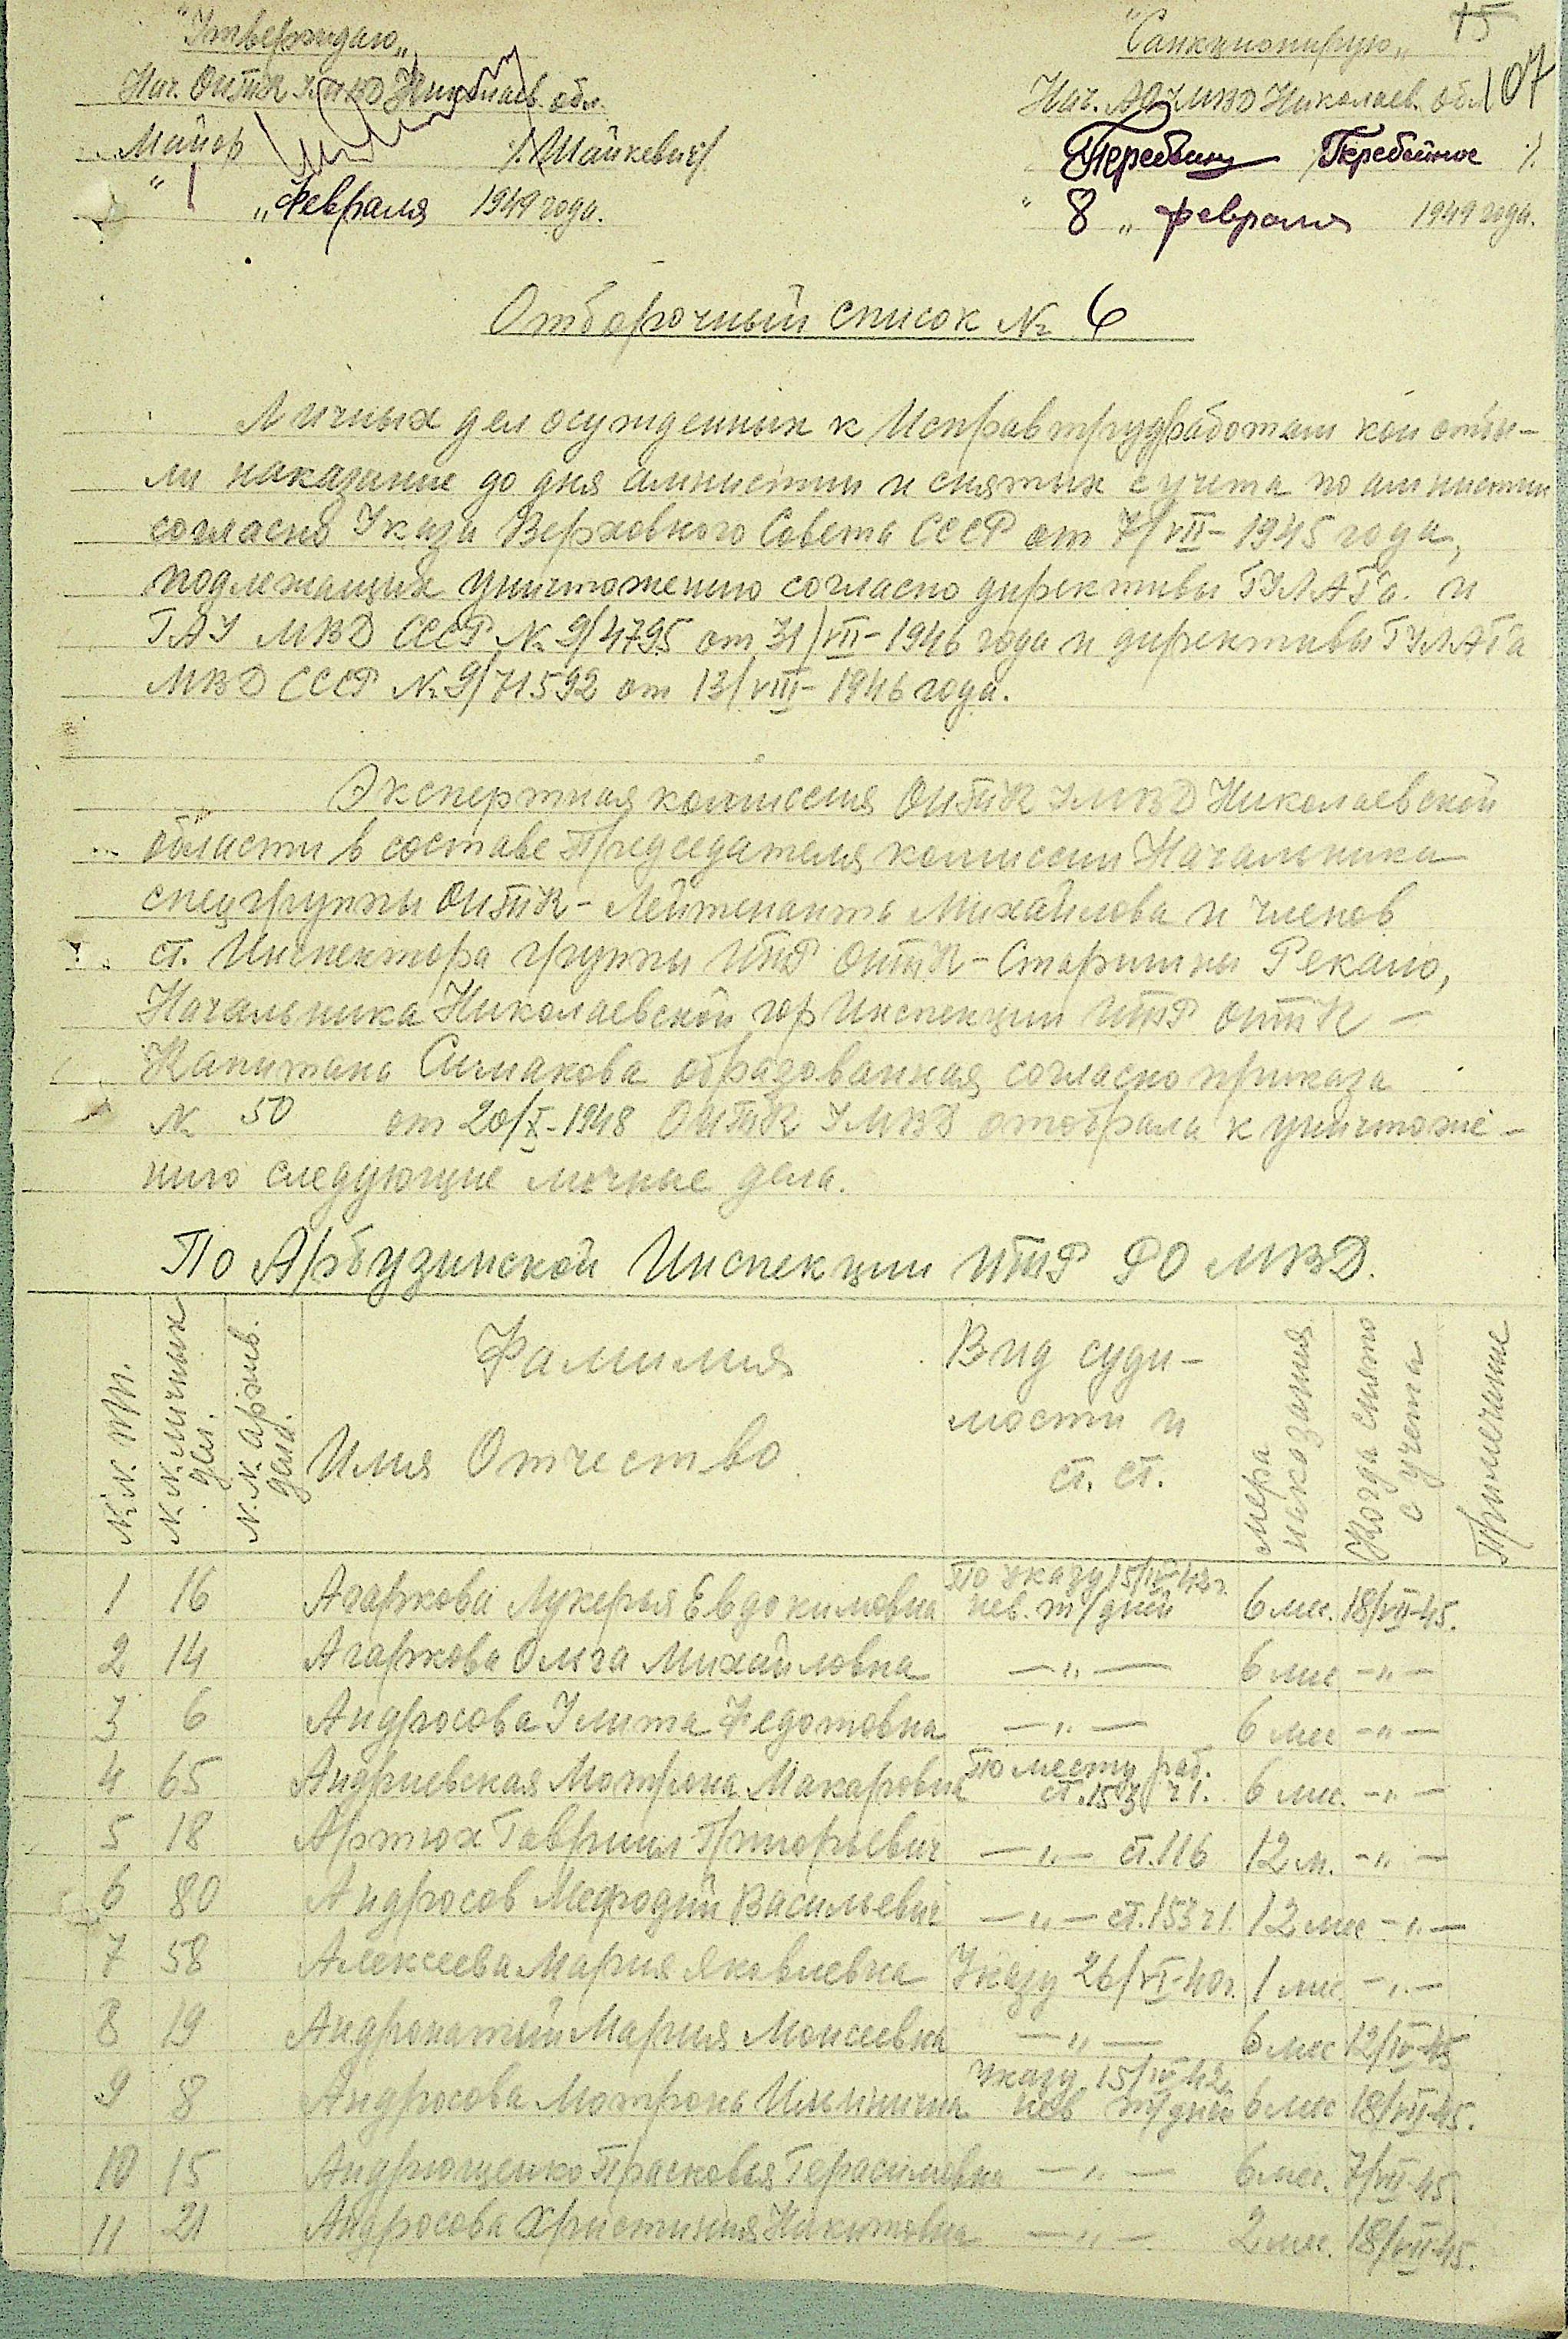 "Утверждаю" "Санкционирую" 15
Нач. ОИТК УМВД Николаев. обл. Нач. АО УМВД Николаев. обл. 107
Майор /Шайкевич/ Теребейное /.
" " Февраля 1949 года. " 8 " февраля 1949 года.
Отборочный список № 6
Личных дел осужденных к Исправтрудработам кои отбы-
ли наказание до дня амнистии и снятых с учета по амнистии
согласно Указа Верховного Совета СССР от 7/VII-1945 года,
подлежащих уничтожению согласно директивы ГУЛАГа. и
ГАУ МВД СССР № 9/4795 от 31/VII-1946 года и директивы ГУЛАГа
МВД СССР № 9/71592 от 13/VIII-1946 года.
Экспертная комиссия ОИТК УМВД Николаевской
области в составе Председателя комиссии Начальника
спецгруппы ОИТК - Лейтенанта Михайлова и членов
ст. Инспектора группы ИТР ОИТК - Старшины Рекало,
Начальника Николаевской гор Инспекции ИТР ОИТК -
Капитана Симакова образованная согласно приказа
№ 50 от 20/X-1948 ОИТК УМВД отобрала к уничтоже-
нию следующие личные дела.
По Арбузинской Инспекции ИТР РО МВД.
№.№. пп. №.№. личных дел. №.№. архив. дела. Фамилия Имя Отчество Вид суди-мости и ст. ст. мера наказания Когда снято с учета Примечание
1 16 Агаркова Лукерья Евдокимовна По указу 15/IV-42г. нев. т/дней 6 мес. 18/VII-45.
2 14 Агаркова Ольга Михайловна —"— 6 мес -"-
3 6 Андросова Улита Федотовна —"— 6 мес -"-
4 65 Андриевская Мотрона Макаровна По месту раб. ст. 153 ч 1. 6 мес. -"-
5 18 Артюх Гавриил Григорьевич —"— ст. 116 12 м. -"-
6 80 Андросов Мефодий Васильевич —"— ст. 153 ч 1. 12 мес -"-
7 58 Алексеева Мария Яковлевна Указу 26/VI-40г. 1 мес. -"-
8 19 Мария Моисеевна —"— 6 мес 12/IV-45
9 8 Андросова Мотрона Ильинична Указу 15/IV-42г нев т/дней 6 мес 18/VII-45.
10 15 Андрющенко Прасковья Герасимовна —"— 6 мес. 7/VII-45.
11 21 Андросова Христиния Никитовна —"— 2 мес. 18/VII-45.